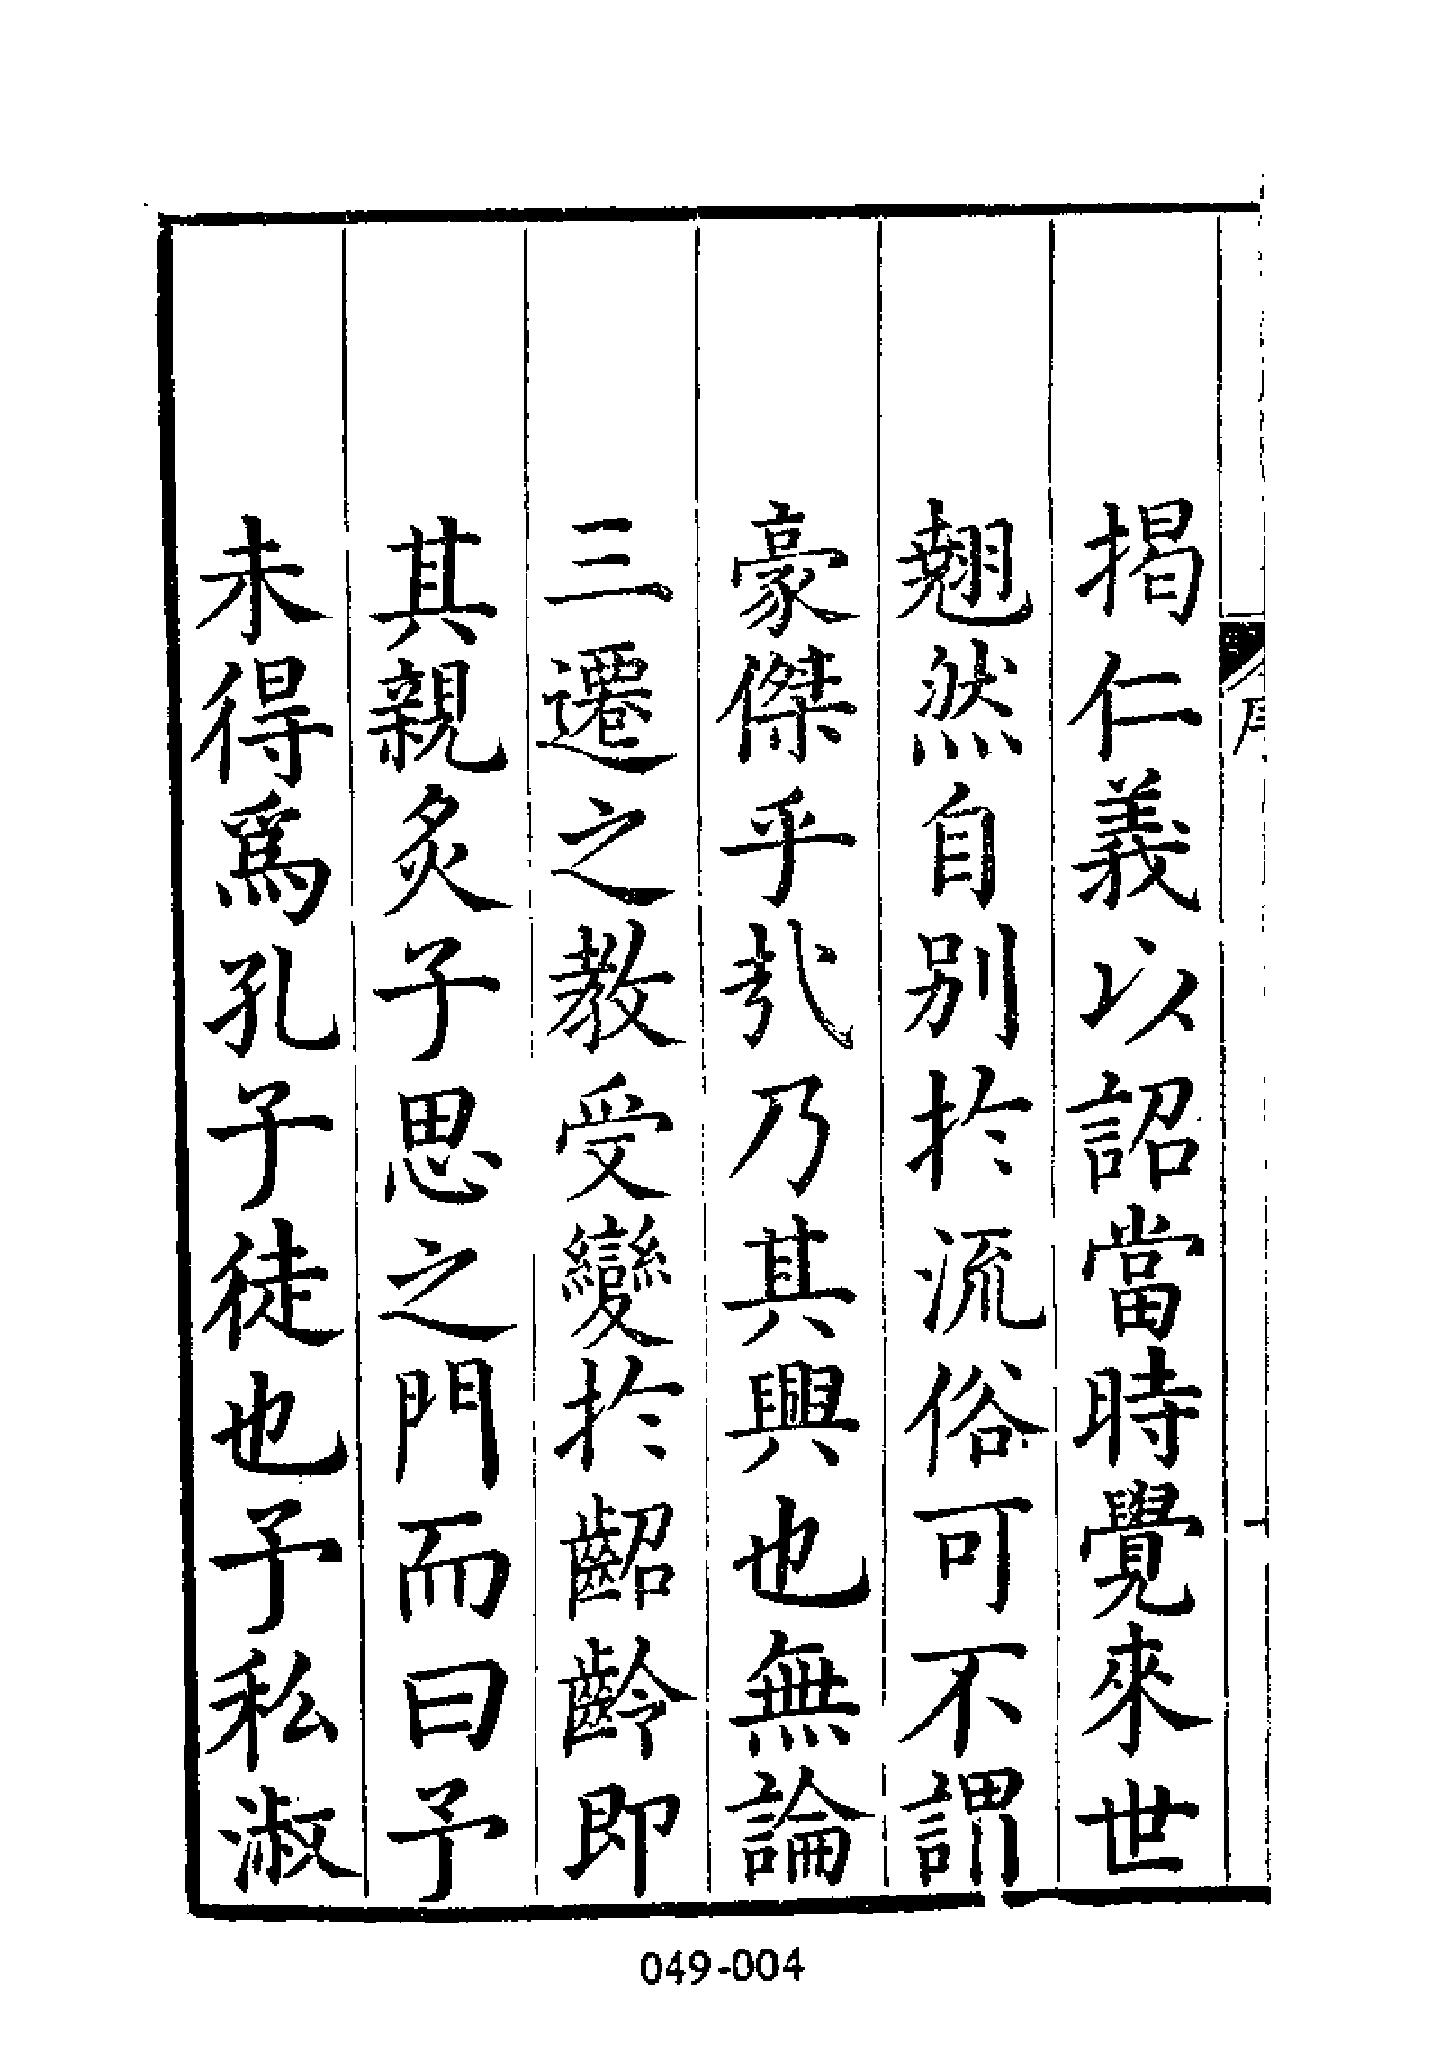 揭仁義以詔當時覺來世
翹然自別於流俗可不謂
豪傑乎㢤乃其興也無論
三遷之教受變於齠齡即
其親炙子思之門而曰予
未得爲孔子徒也予私淑
序
049-004